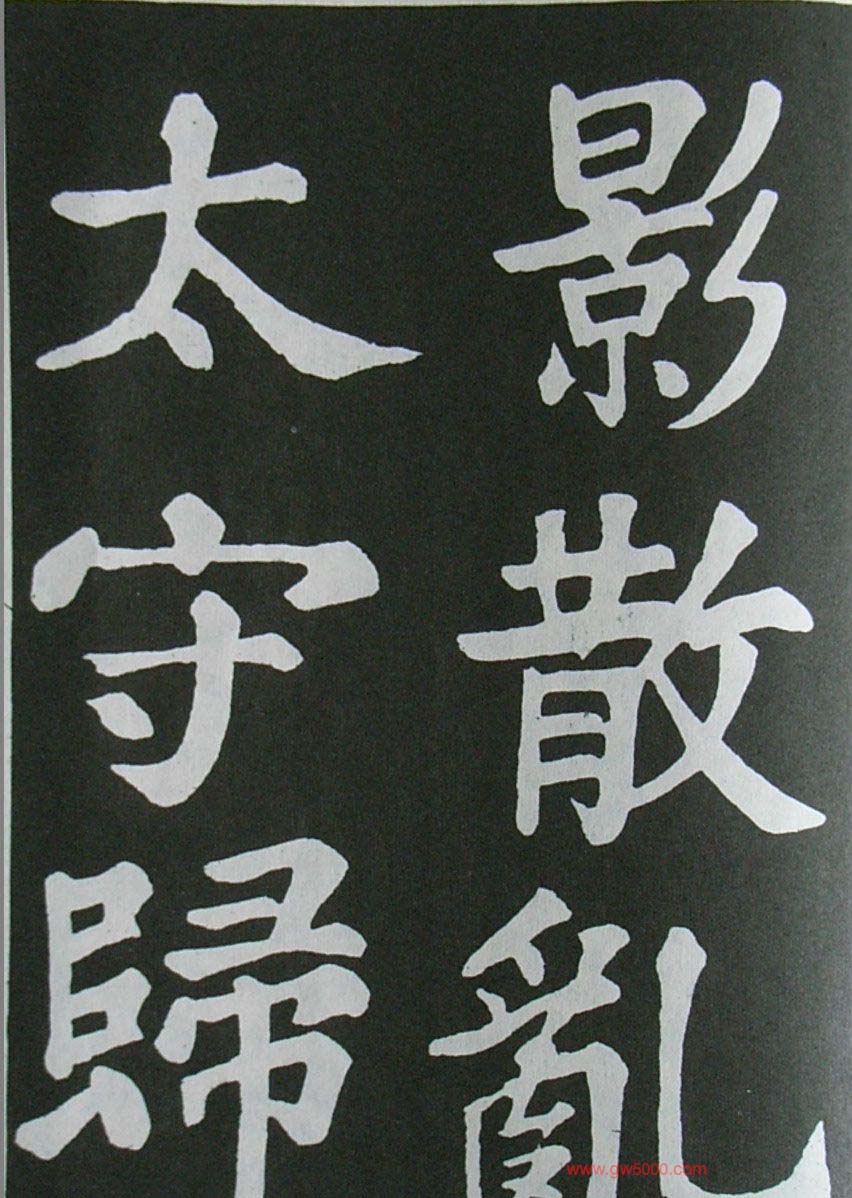 影散亂
太守歸
www.gw5000.com